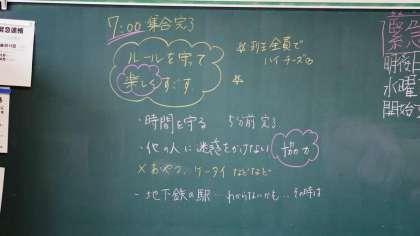 7:00 集合完了
ルールを守って
楽しくすごす
☆ 班全員で
ハイチーズ
☆
・時間を守る 5分前完了
・他の人に迷惑をかけない 協力
×おやつ、ケータイなどなど
・地下鉄の駅…わからないかも…その時は
緊急連絡
緊急
明後日
水曜
開始